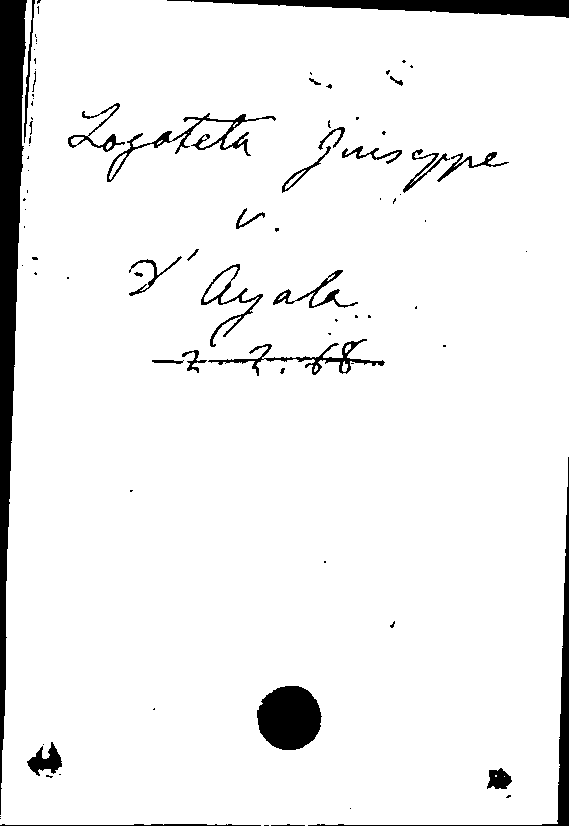 Logoteta Giuseppe
v.
D'Ayala
2.2.68